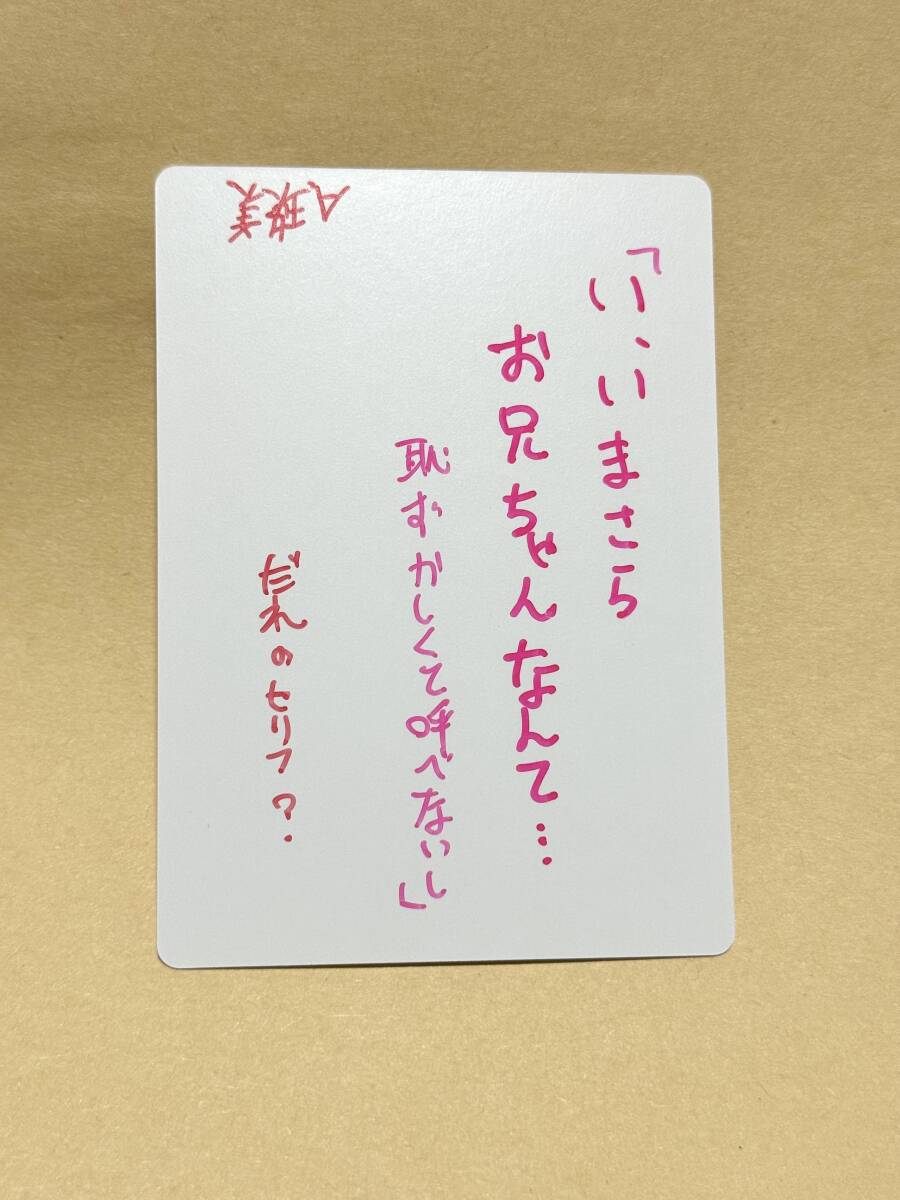 「い、いまさら
お兄ちゃんなんて…
恥ずかしくて呼べないし」
だれのセリフ?